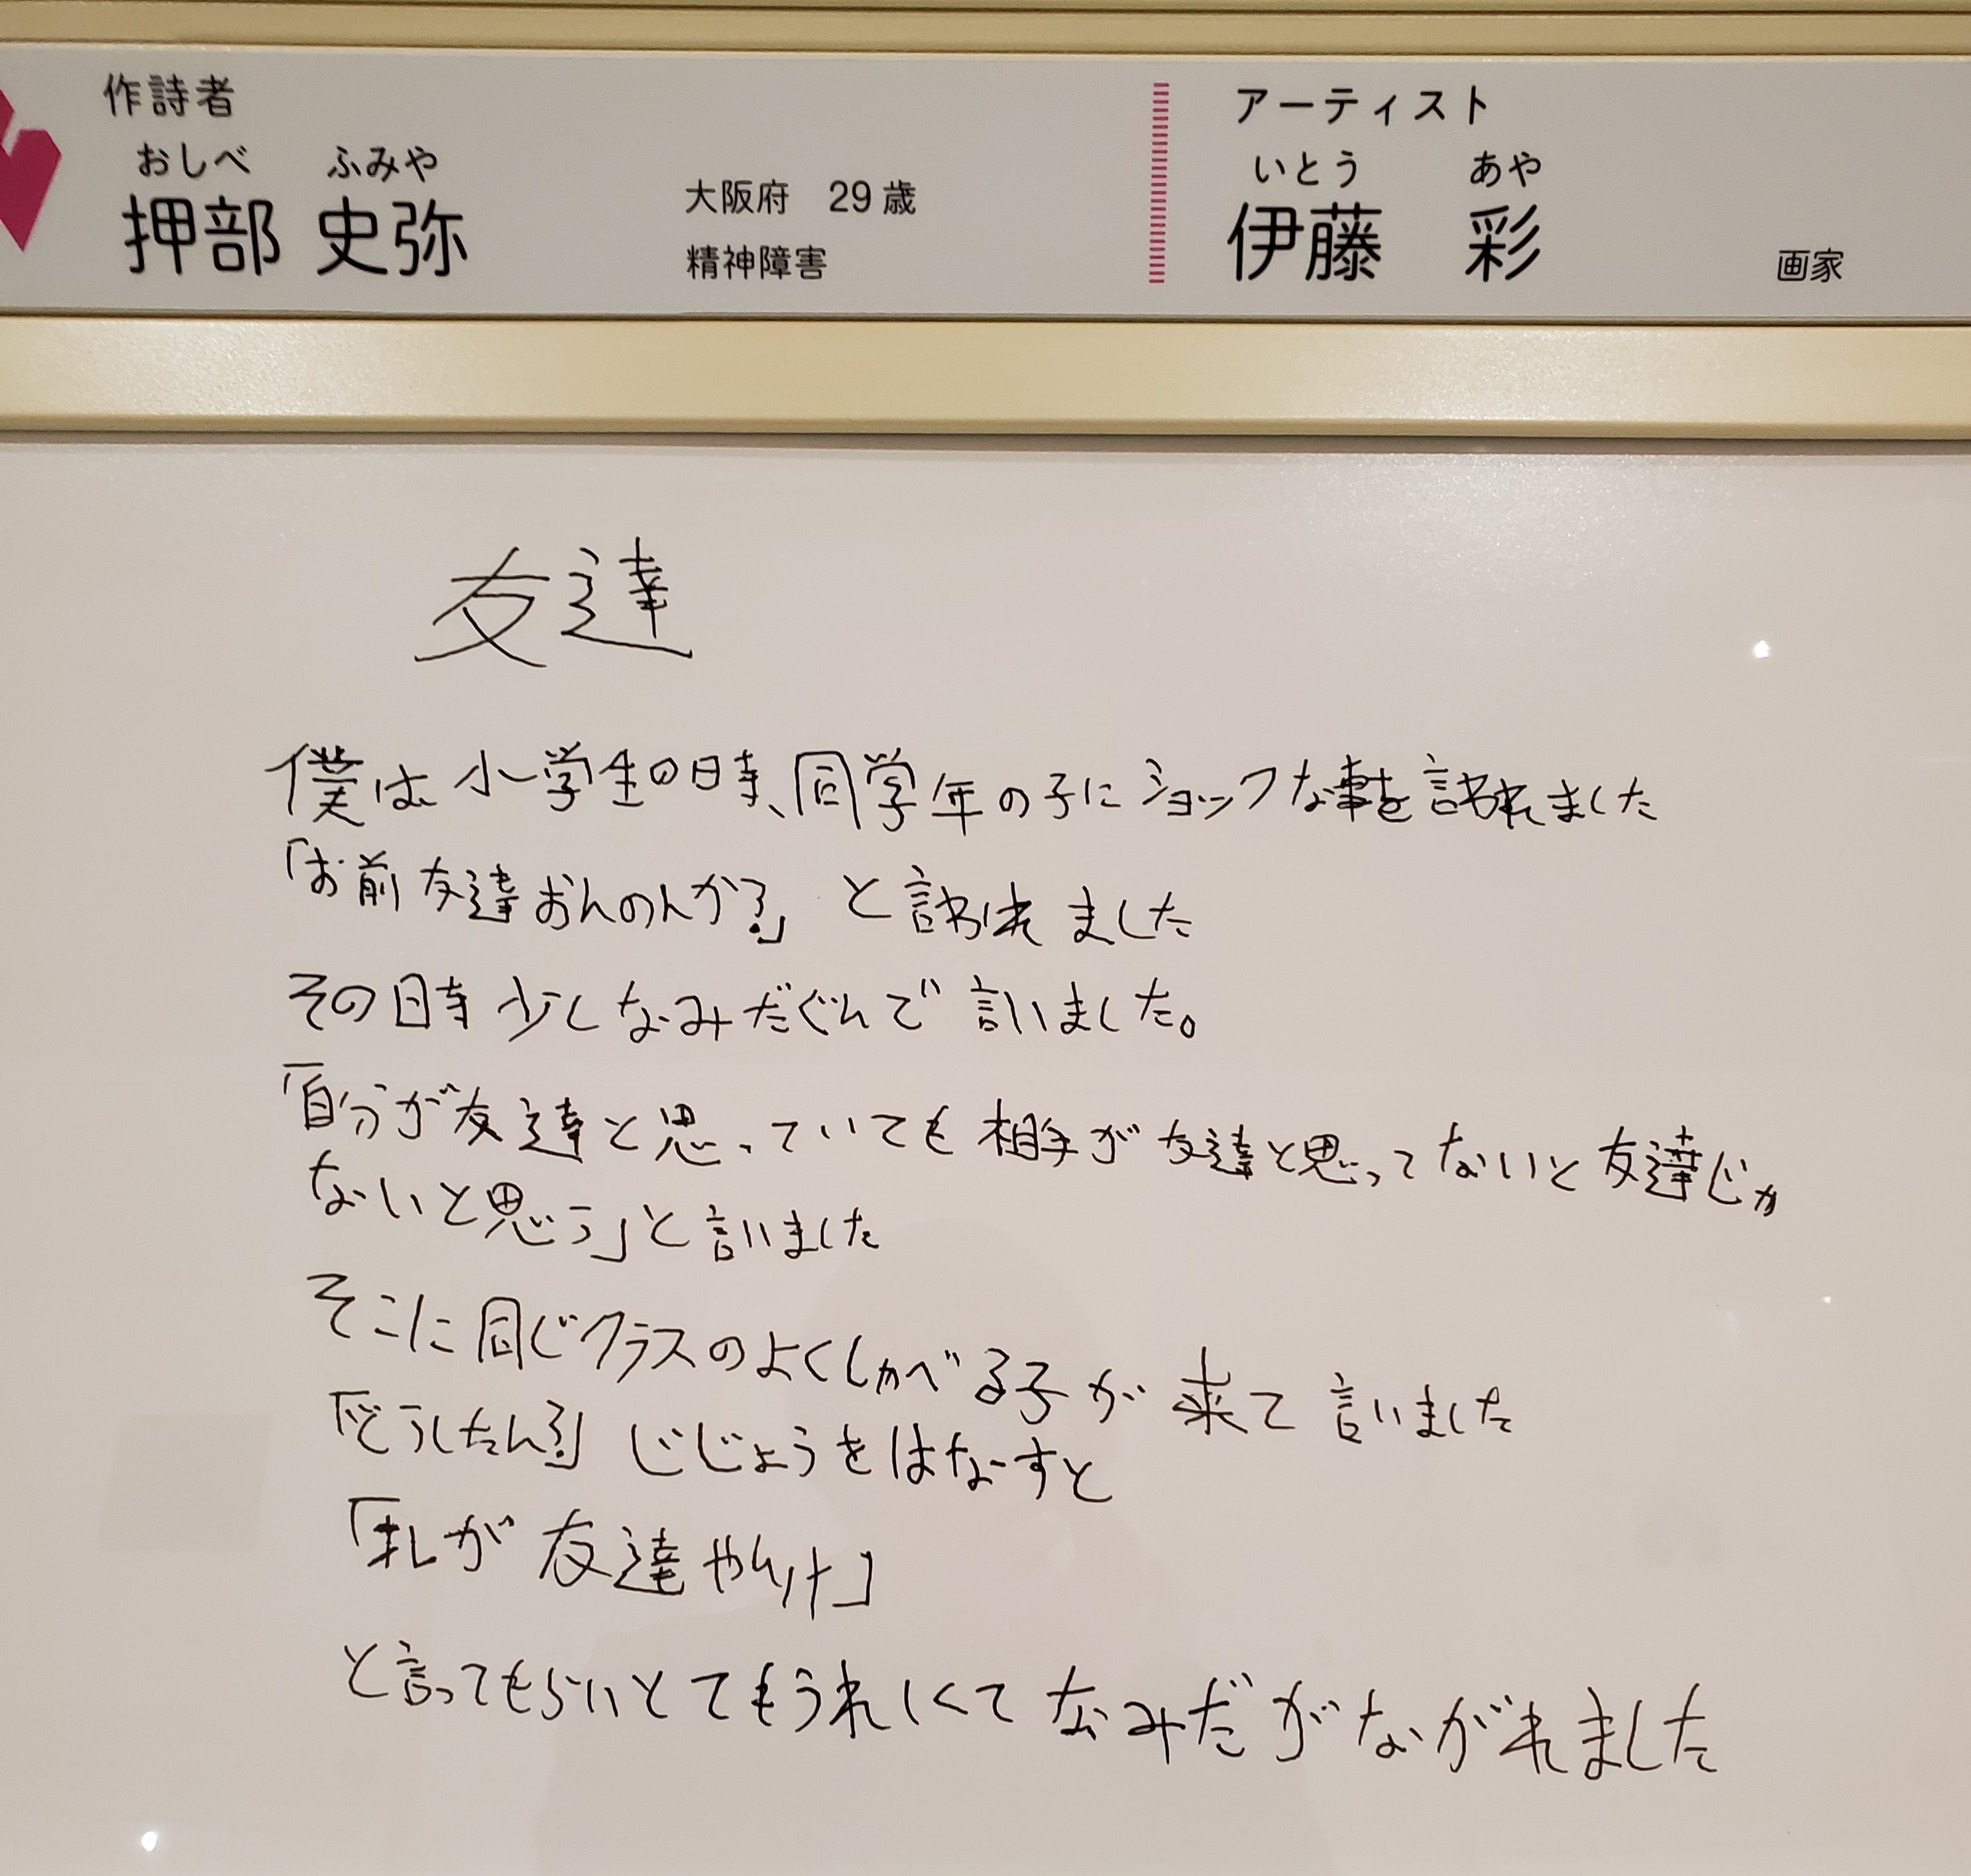 作詩者
おしべ ふみや
押部 史弥
大阪府 29歳
精神障害
アーティスト
いとう あや
伊藤 彩
画家
友達
僕は小学生の時、同学年の子にショックな事を言われました
「お前友達おんのんか?」と言われました
その時少しなみだぐんで言いました。
「自分が友達と思っていても相手が友達と思ってないと友達じゃ
ないと思う」と言いました
そこに同じクラスのよくしゃべる子が来て言いました
「どうしたん?」じじょうをはなすと
「私が友達やんけ」
と言ってもらいとてもうれしくてなみだがながれました